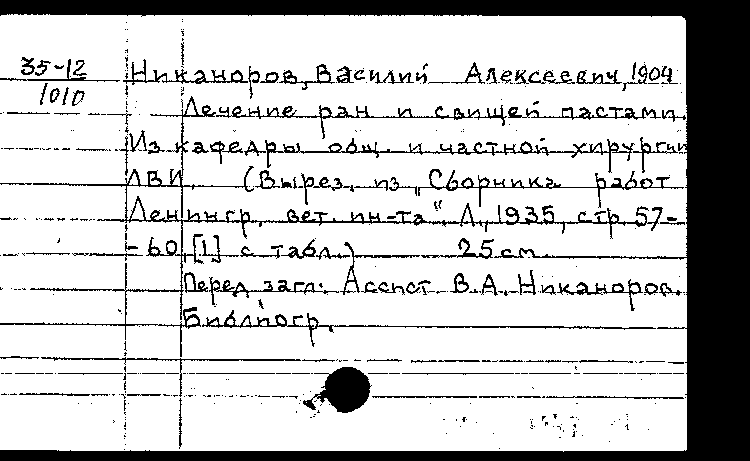 35-12
1010
Никаноров, Василий Алексеевич, 1904
Лечение ран и свищей пастами.
Из кафедры общ. и частной хирургии
ЛВИ. (Вырез. из „Сборника работ
Ленингр. вет. ин-та“. Л., 1935, стр. 57-
-60, [1] с табл.) 25 см.
Перед загл: Ассист В.А. Никаноров.
Библиогр.